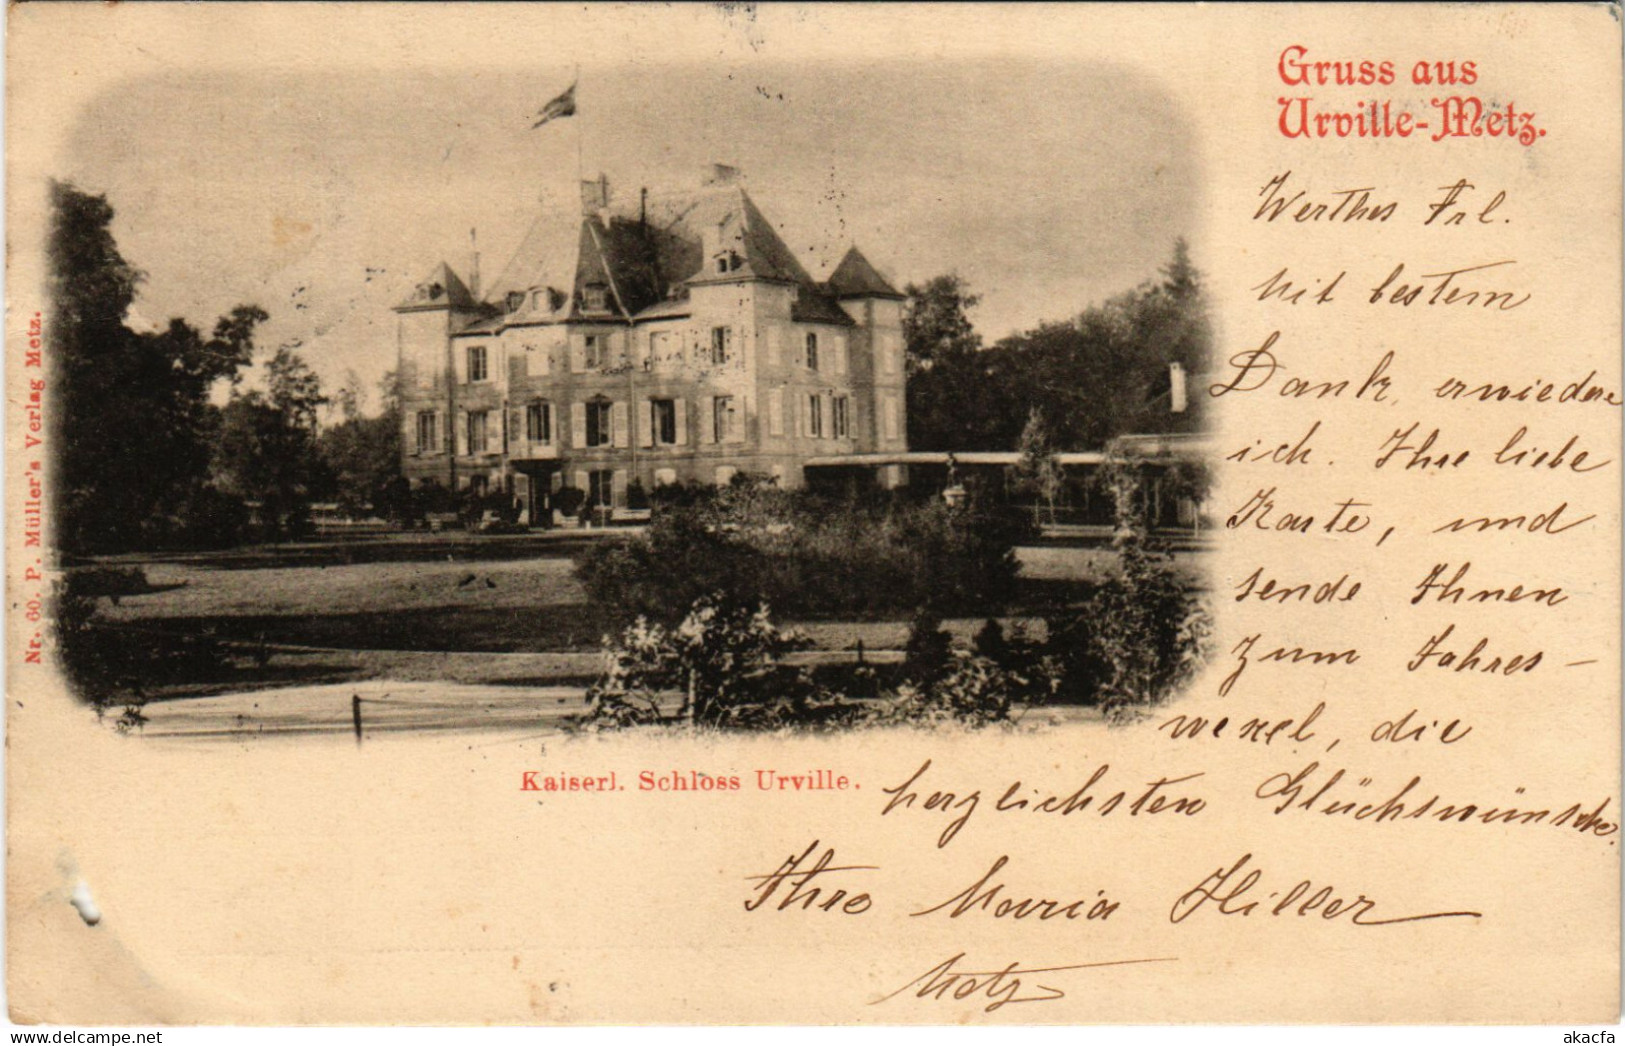 Gruss aus
Urville-Metz.
Werthes Frl.
Mit bestem
Dank, erwiedere
ich. Ihre liebe
Karte, und
sende Ihnen
zum Jahres-
wexel, die
herzlichsten Glückswünsche.
Ihre Maria Hiller
Metz
Kaiserl. Schloss Urville.
Nr. 60. P. Müller's Verlag Metz.
akacfa